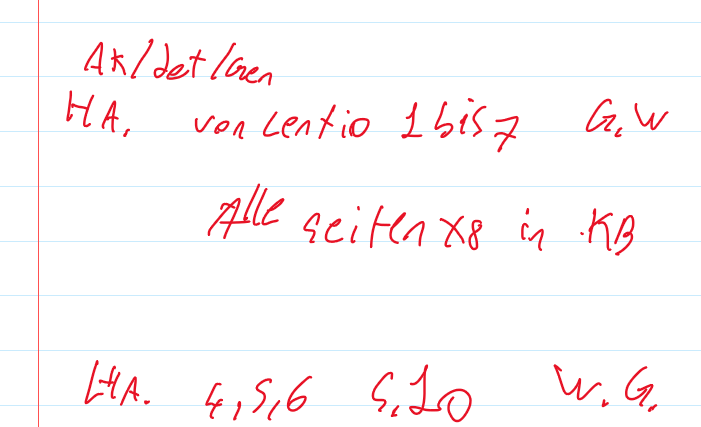 Ak/det/Gen
HA. von Lentio 1 bis 7 G.W
Alle seiten x8 in KB
HA. 4,5,6 S.10 W.G.